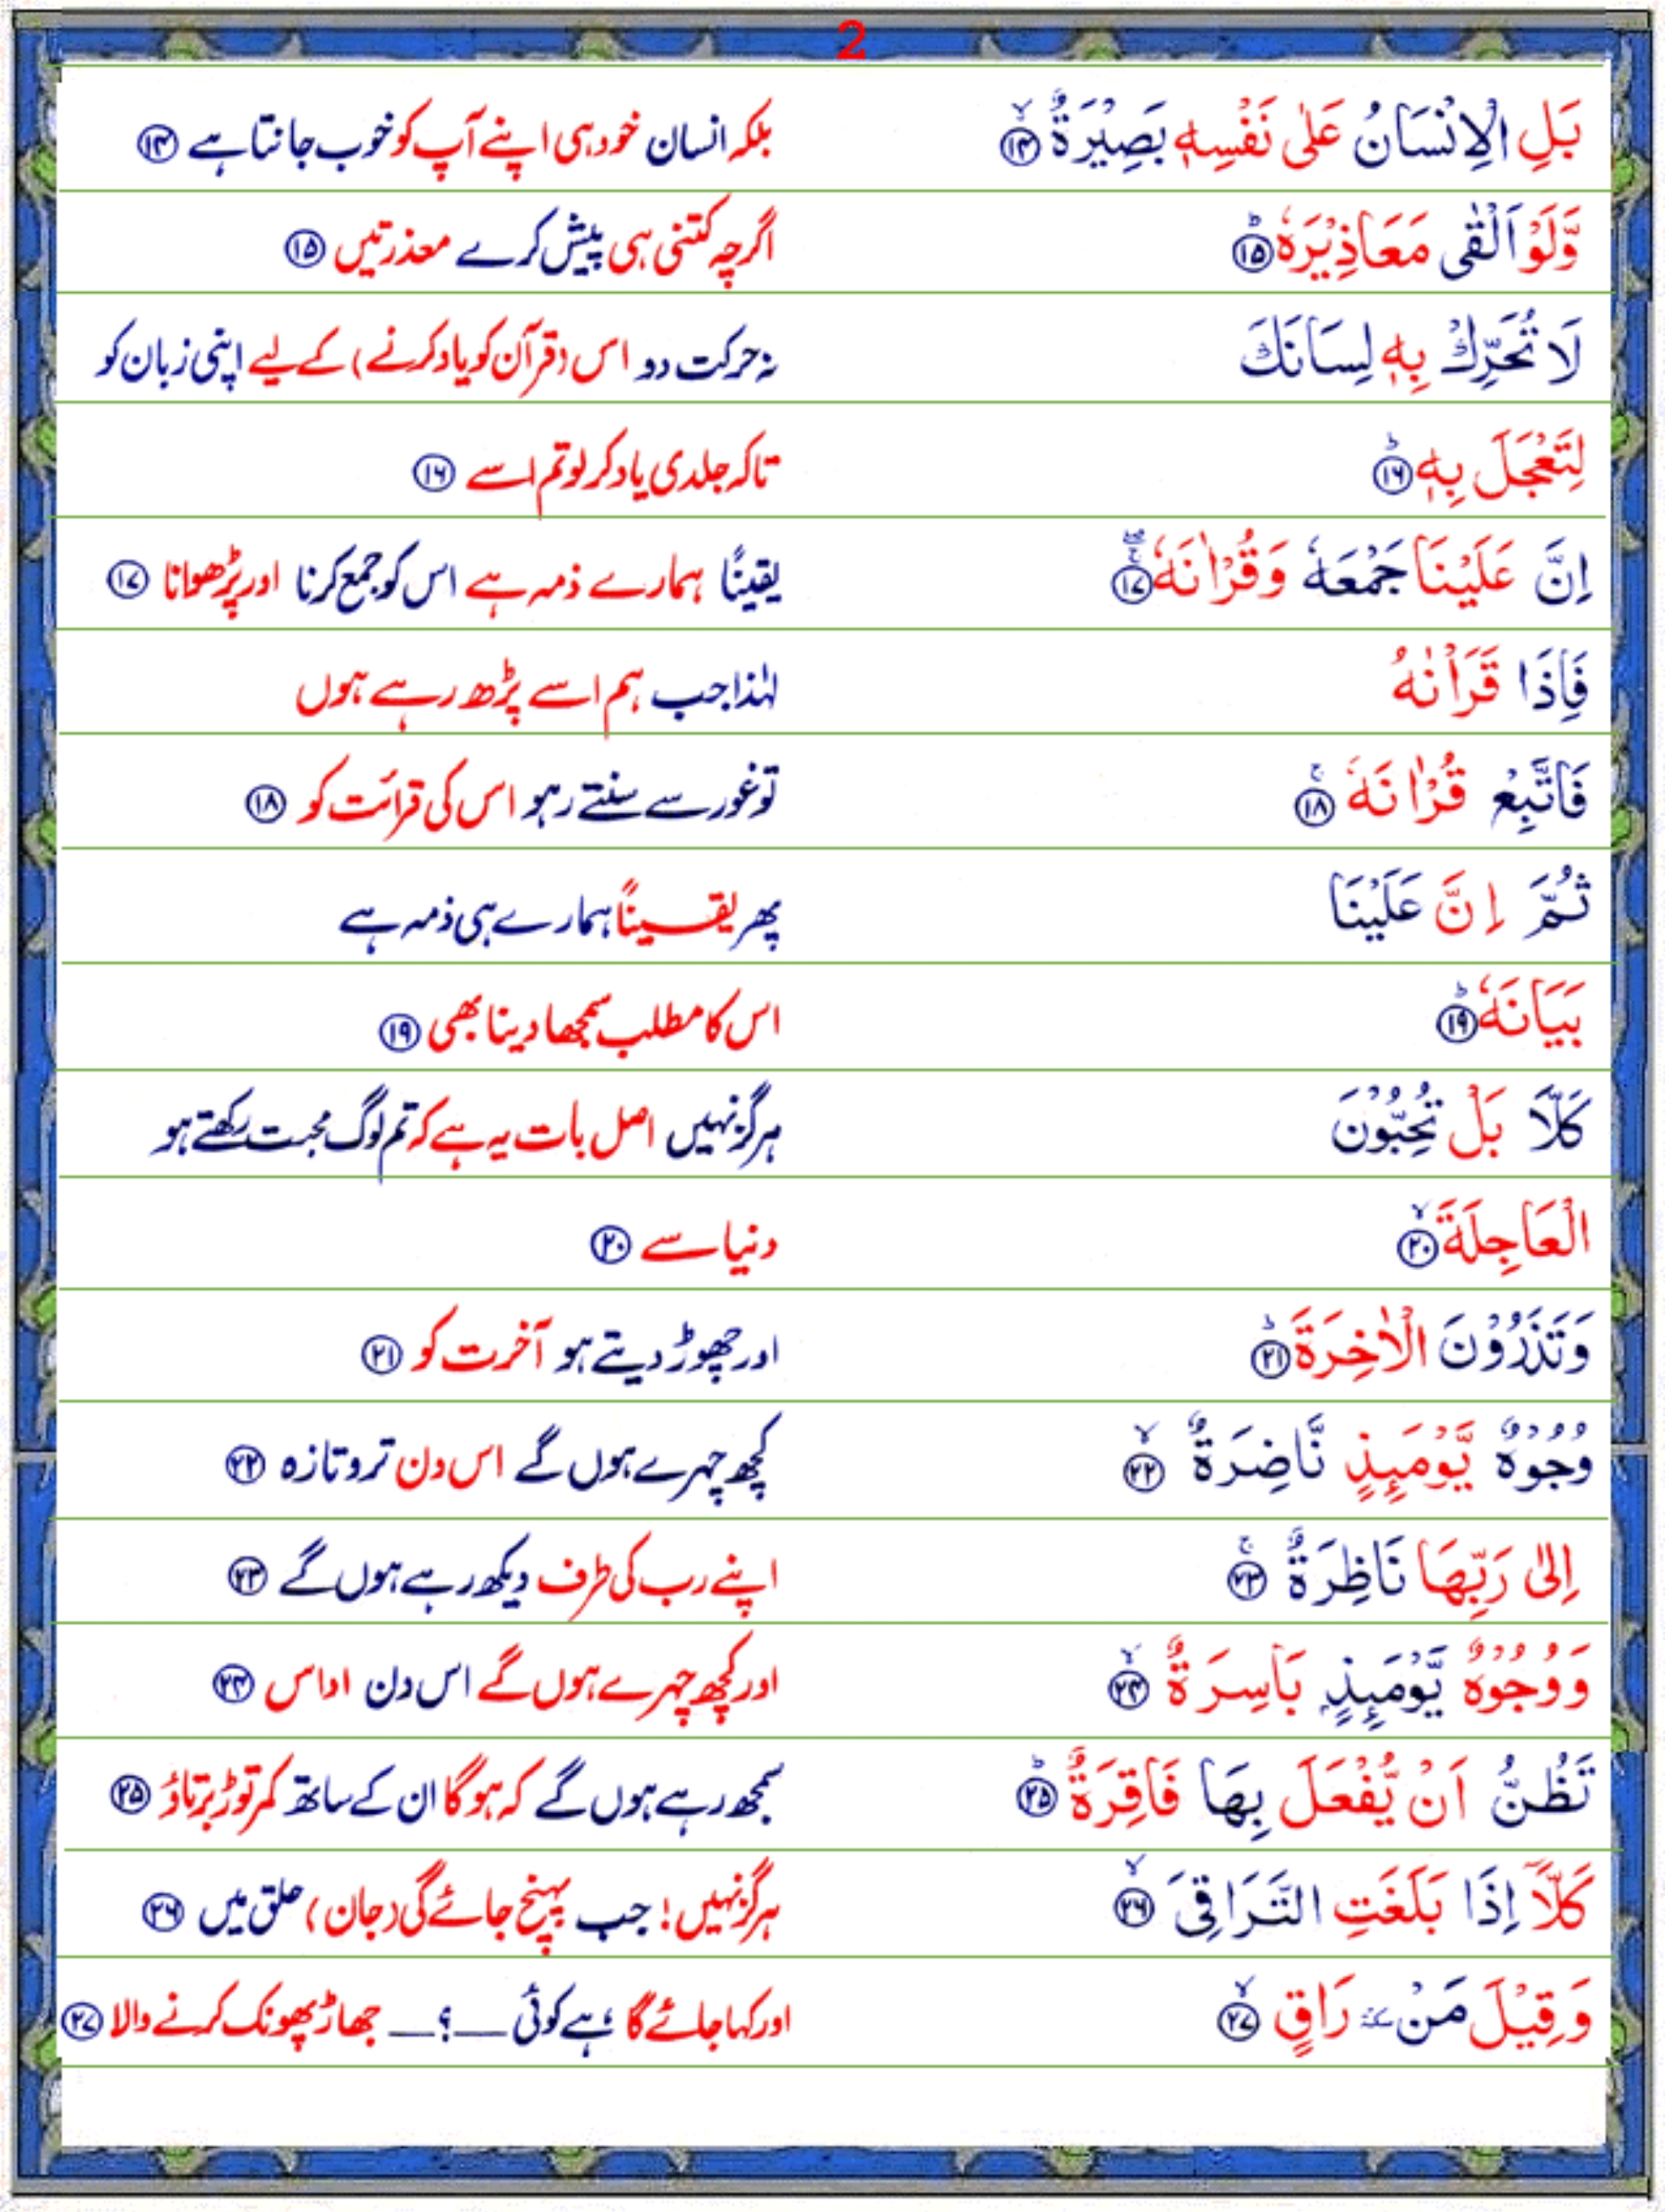 2
بَلِ الْاِنْسَانُ عَلٰى نَفْسِهٖ بَصِيْرَةٌ ۙ‏﴿۱۴﴾ بلکہ انسان خود ہی اپنے آپ کو خوب جانتا ہے ﴿۱۴﴾
وَّلَوْ اَلْقٰى مَعَاذِيْرَهٗ ؕ‏﴿۱۵﴾ اگرچہ کتنی ہی پیش کرے معذرتیں ﴿۱۵﴾
لَا تُحَرِّكْ بِهٖ لِسَانَكَ نہ حرکت دو اس (قرآن کو یاد کرنے) کے لیے اپنی زبان کو
لِتَعْجَلَ بِهٖ ؕ‏﴿۱۶﴾ تاکہ جلدی یاد کر لو تم اسے ﴿۱۶﴾
اِنَّ عَلَيْنَا جَمْعَهٗ وَقُرْاٰنَهٗ ۚۖ‏﴿۱۷﴾ یقینًا ہمارے ذمہ ہے اس کو جمع کرنا اور پڑھوانا ﴿۱۷﴾
فَاِذَا قَرَاْنٰهُ لہٰذا جب ہم اسے پڑھ رہے ہوں
فَاتَّبِعْ قُرْاٰنَهٗ ۚ‏﴿۱۸﴾ تو غور سے سنتے رہو اس کی قرائت کو ﴿۱۸﴾
ثُمَّ اِنَّ عَلَيْنَا پھر یقیناً ہمارے ہی ذمہ ہے
بَيَانَهٗ ؕ‏﴿۱۹﴾ اس کا مطلب سمجھا دینا بھی ﴿۱۹﴾
كَلَّا بَلْ تُحِبُّوْنَ ہرگز نہیں اصل بات یہ ہے کہ تم لوگ محبت رکھتے ہو
الْعَاجِلَةَ ۙ‏﴿۲۰﴾ دنیا سے ﴿۲۰﴾
وَتَذَرُوْنَ الْاٰخِرَةَ ؕ‏﴿۲۱﴾ اور چھوڑ دیتے ہو آخرت کو ﴿۲۱﴾
وُجُوْهٌ يَّوْمَئِذٍ نَّاضِرَةٌ ۙ‏﴿۲۲﴾ کچھ چہرے ہوں گے اس دن تر و تازہ ﴿۲۲﴾
اِلٰى رَبِّهَا نَاظِرَةٌ ۚ‏﴿۲۳﴾ اپنے رب کی طرف دیکھ رہے ہوں گے ﴿۲۳﴾
وَوُجُوْهٌ يَّوْمَئِذٍۭ بَاسِرَةٌ ۙ‏﴿۲۴﴾ اور کچھ چہرے ہوں گے اس دن اداس ﴿۲۴﴾
تَظُنُّ اَنْ يُّفْعَلَ بِهَا فَاقِرَةٌ ؕ‏﴿۲۵﴾ سمجھ رہے ہوں گے کہ ہو گا ان کے ساتھ کمر توڑ برتاؤ ﴿۲۵﴾
كَلَّاۤ اِذَا بَلَغَتِ التَّرَاقِىَ ۙ‏﴿۲۶﴾ ہرگز نہیں! جب پہنچ جائے گی (جان) حلق میں ﴿۲۶﴾
وَقِيْلَ مَنْ ۜ رَاقٍ ۙ‏﴿۲۷﴾ اور کہا جائے گا ؛ ہے کوئی ــــ؟ــــ جھاڑ پھونک کرنے والا ﴿۲۷﴾